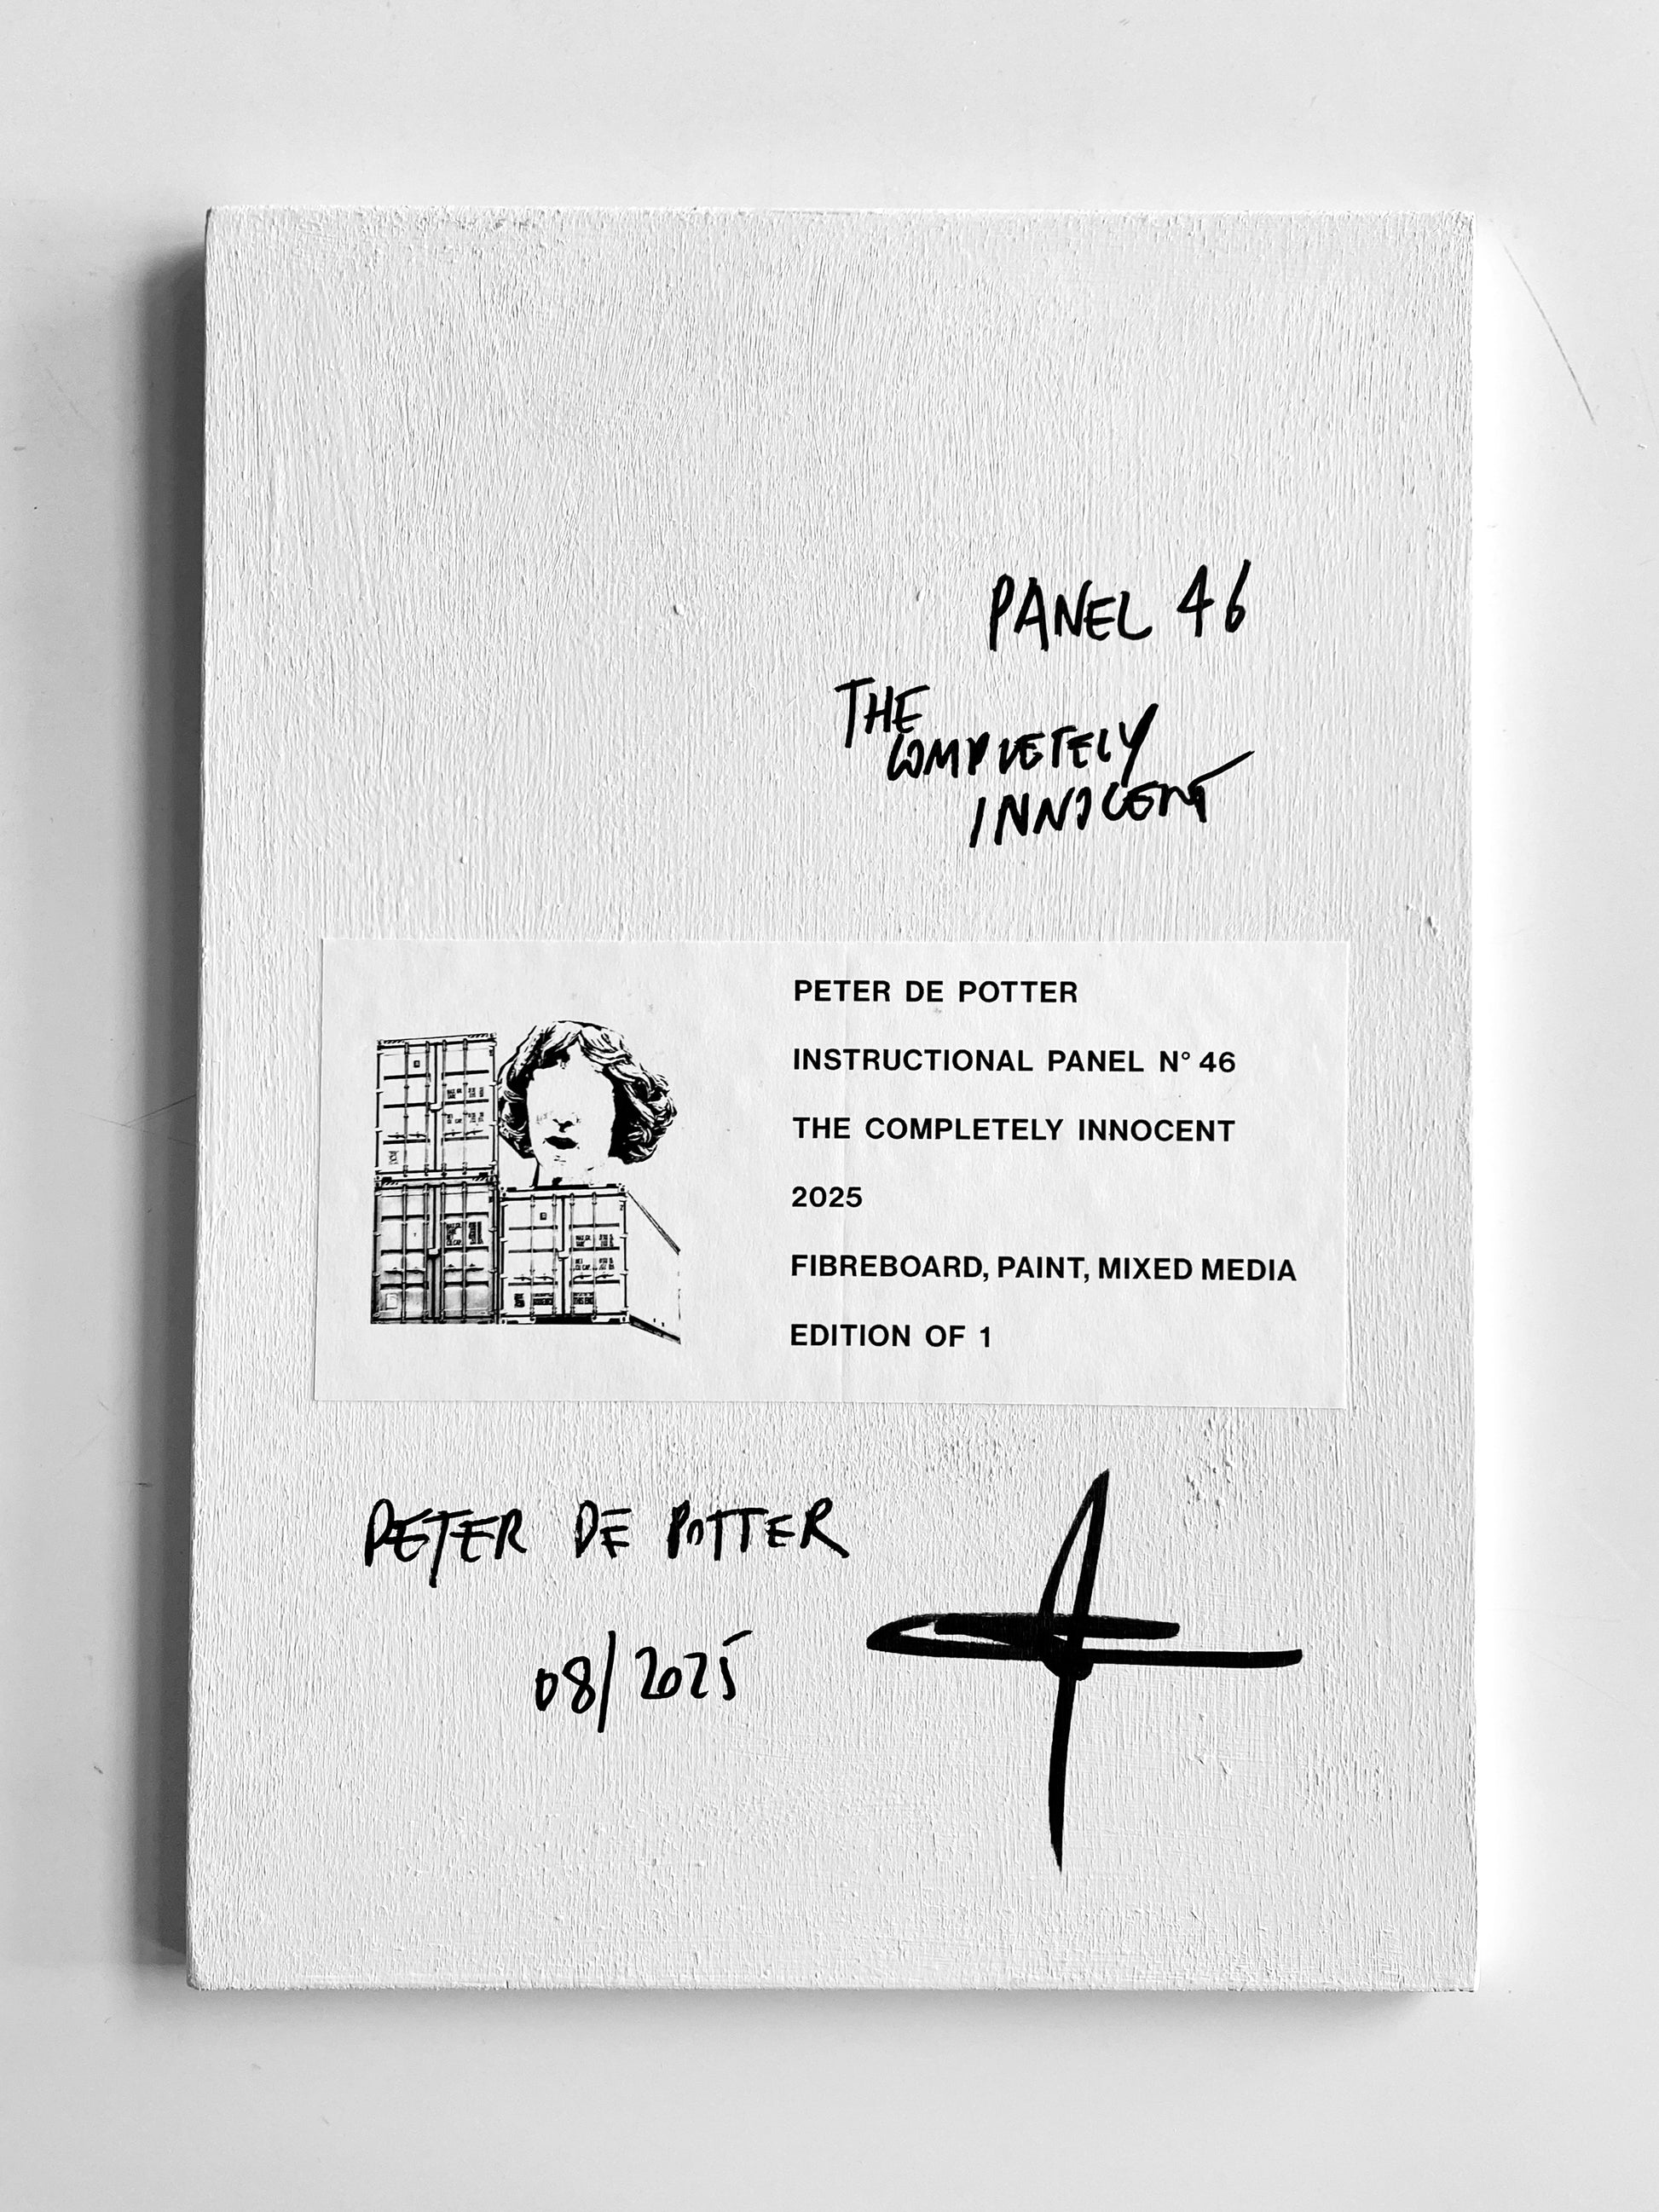 PANEL 46
THE
COMPLETELY
INNOCENT
PETER DE POTTER
INSTRUCTIONAL PANEL N° 46
THE COMPLETELY INNOCENT
2025
FIBREBOARD, PAINT, MIXED MEDIA
EDITION OF 1
PETER DE POTTER
08/2025